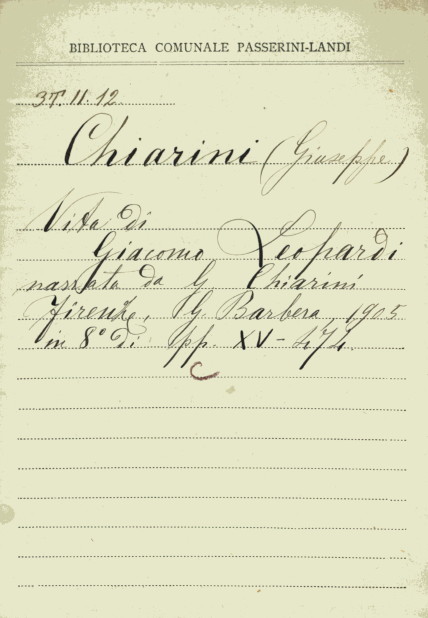 BIBLIOTECA COMUNALE PASSERINI-LANDI
3T.II.12
Chiarini (Giuseppe)
Vita di
Giacomo Leopardi
narrata da G Chiarini
Firenze, G. Barbera, 1905
in 8° di pp. XV - 474.
C